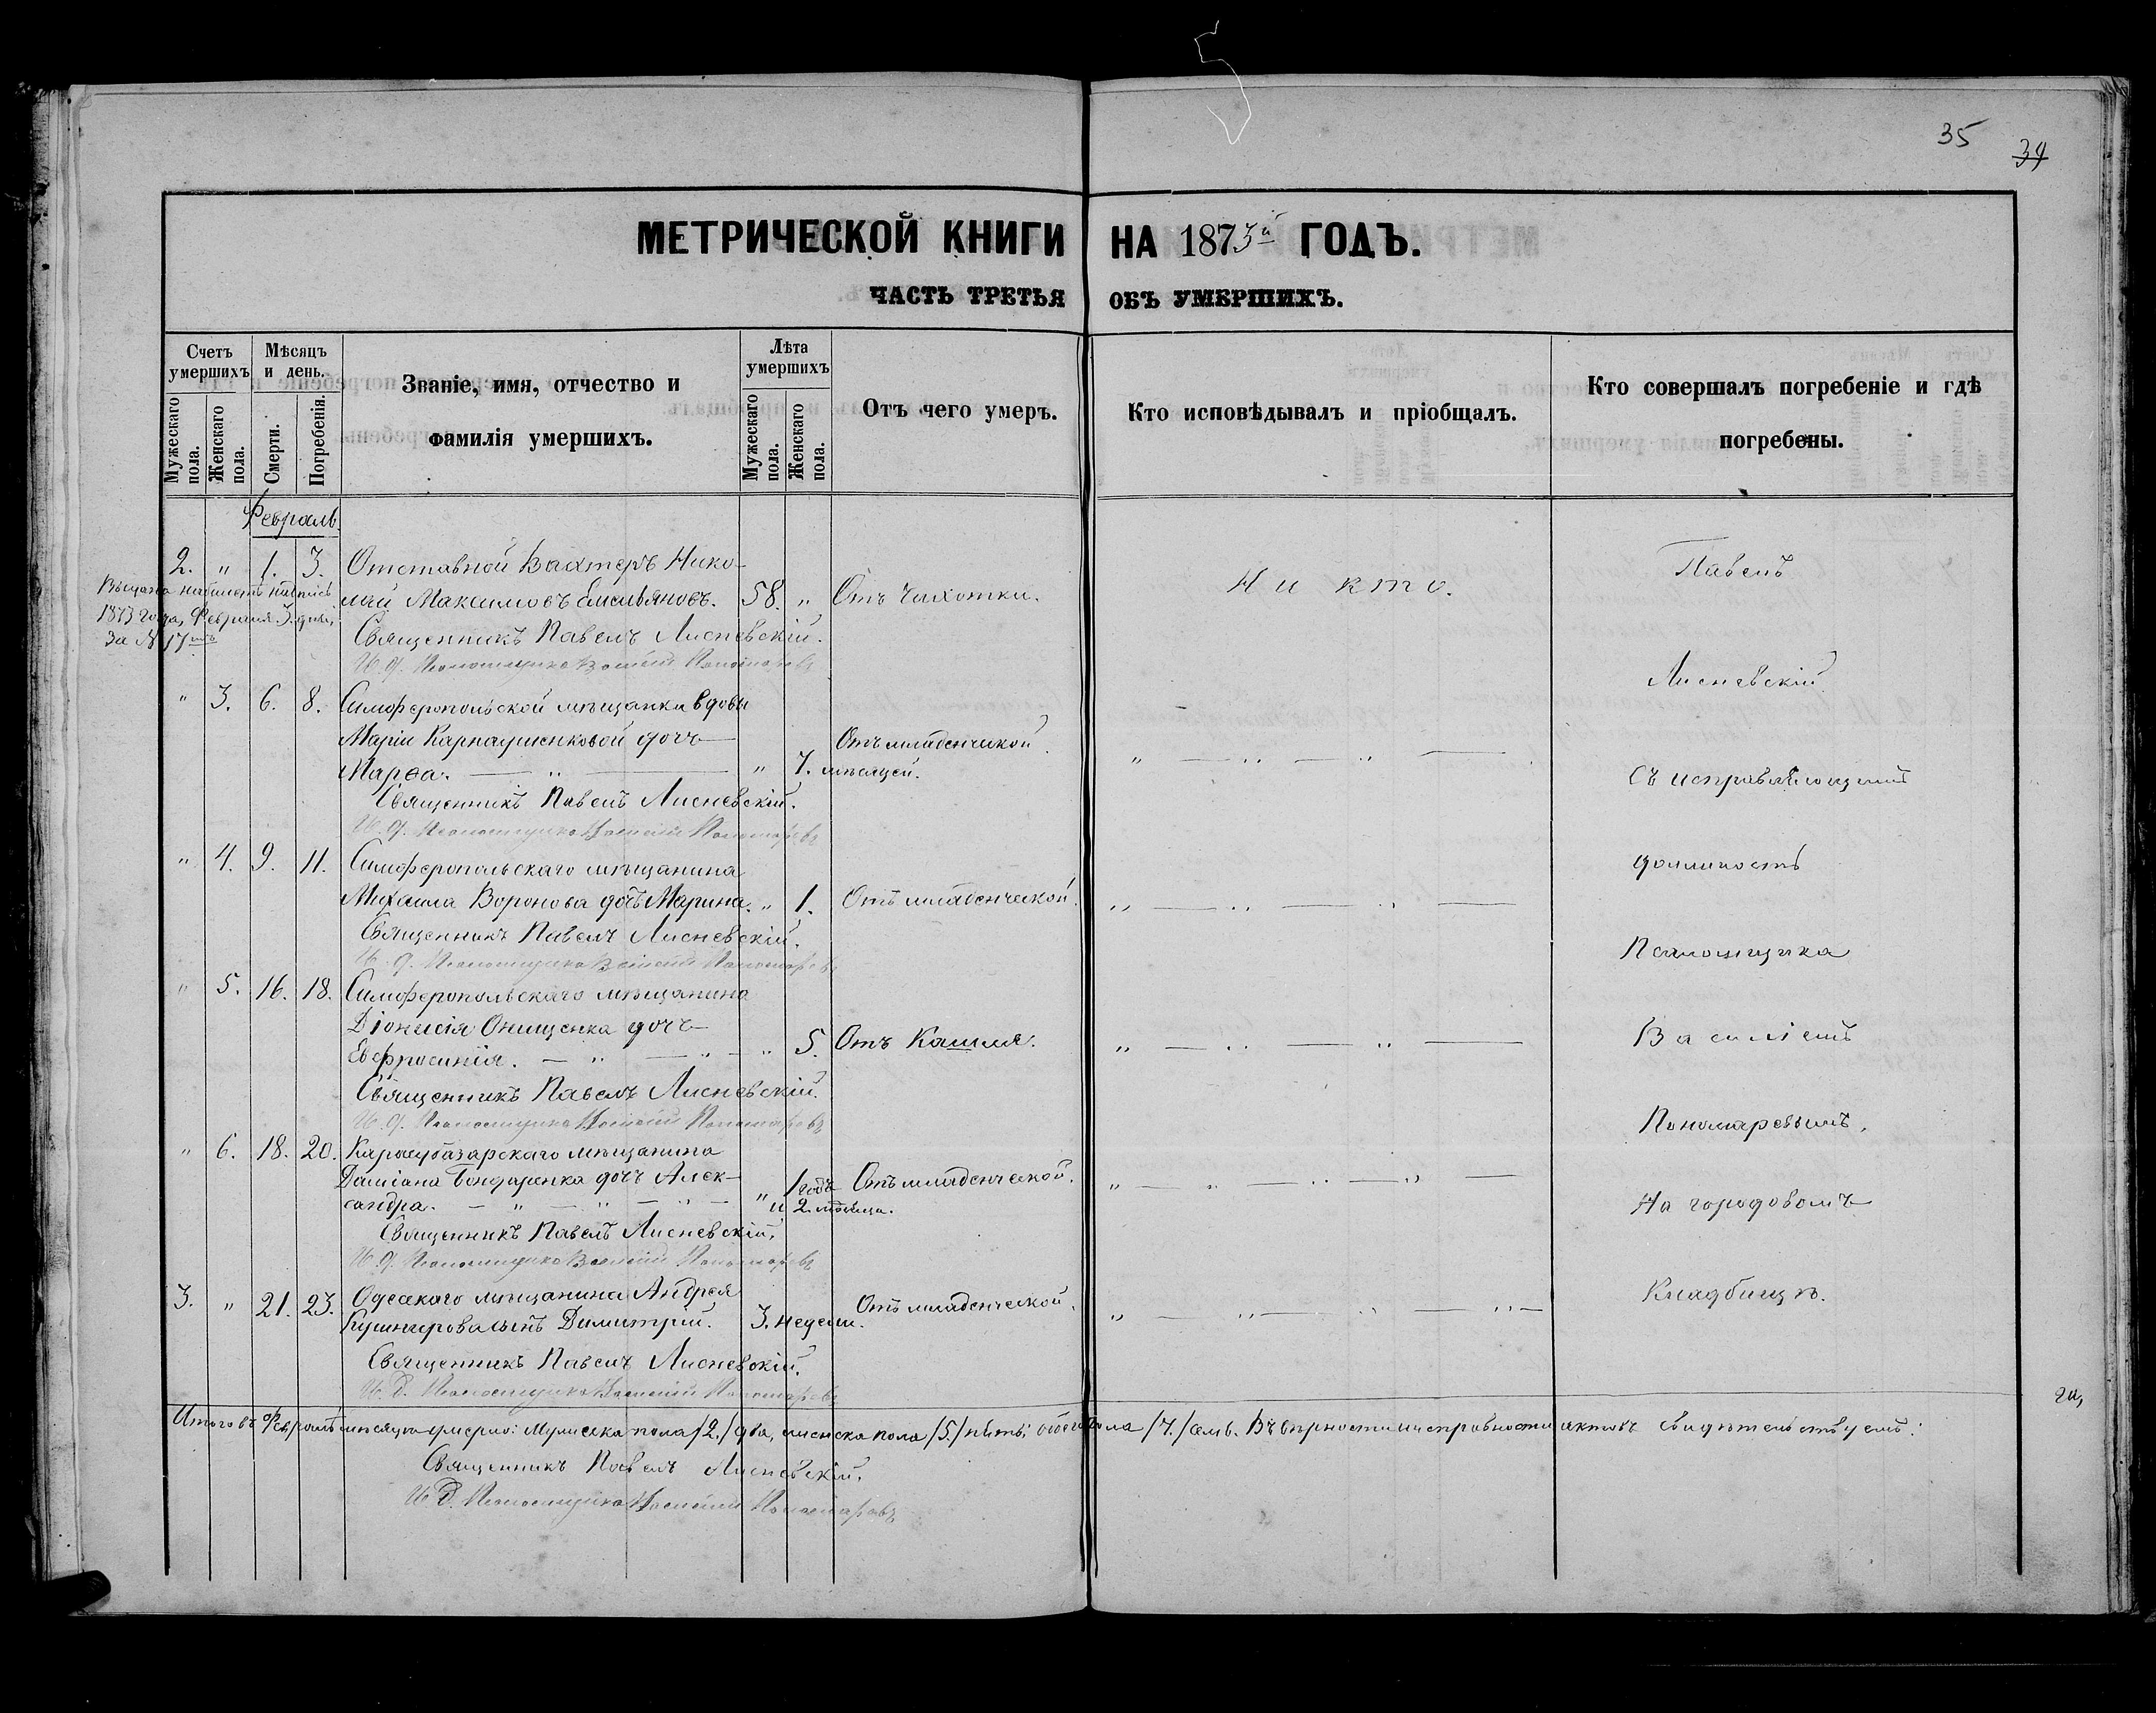 35 34
МЕТРИЧЕСКОЙ КНИГИ НА 1873й ГОДЪ.
ЧАСТЬ ТРЕТЬЯ ОБЪ УМЕРШИХЪ.
Счетъ умершихъ
Мужескаго пола.
Женскаго пола.
Мѣсяцъ и день.
Смерти.
Погребенія.
Званіе, имя, отчество и
фамилія умершихъ.
Лѣта умершихъ
Мужескаго пола.
Женскаго пола.
Отъ чего умеръ.
Кто исповѣдывалъ и пріобщалъ.
Кто совершалъ погребеніе и гдѣ
погребены.
Февраль.
2. " 1. 3. Отставной Вахтеръ Нико-
лай Максимовъ Емельяновъ. 58. " Отъ Чахотки. Никто.
1873 года, Февраля 3. дня,
за № 17
Священникъ Павелъ Лисневскій.
И. д. Псаломщика Василій Пономаревъ
" 3. 6. 8. Симферопольской мѣщанки вдовы
Маріи Карпаушенковой дочь
Марѳа. " 7. мѣсяцей. Отъ младенческой.
Священникъ Павелъ Лисневскій.
И. д. Псаломщика Василій Пономаревъ
" 4. 9. 11. Симферопольскаго мѣщанина
Михаила Воронова дочь Марина. " 1. Отъ младенческой.
Священникъ Павелъ Лисневскій.
И. д. Псаломщика Василій Пономаревъ
" 5. 16. 18. Симферопольскаго мѣщанина
Діонисія Онищенка дочь
Евфросинія. " 5. Отъ Кашля.
Священникъ Павелъ Лисневскій.
И. д. Псаломщика Василій Пономаревъ
" 6. 18. 20. Карасубазарскаго мѣщанина
Даміана Бондаренка дочь Алек-
сандра. " 1 годъ и 2. мѣсяца. Отъ младенческой.
Священникъ Павелъ Лисневскій.
И. д. Псаломщика Василій Пономаревъ
3. " 21. 23. Одесскаго мѣщанина Андрея
Кушнирова сынъ Димитрій. 3. недели. Отъ младенческой.
Священникъ Павелъ Лисневскій.
И. д. Псаломщика Василій Пономаревъ
Павелъ
Лисневскій
съ исправляющимъ
должность
Псаломщика
Василіемъ
Пономаревымъ.
На городовомъ
Кладбищѣ.
Итого въ Февралѣ мѣсяцѣ умерло: мужеска пола /2./ два, женска пола /5./ пять; обоего пола /7./ семь. Въ вѣрности и исправности актовъ свидѣтельствуемъ:
Священникъ Павелъ Лисневскій.
И. д. Псаломщика Василій Пономаревъ